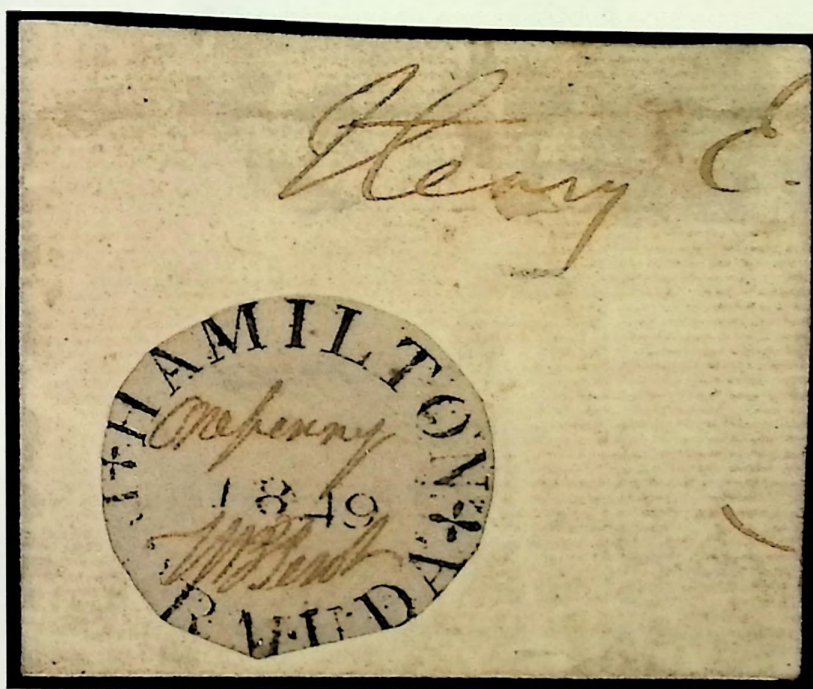 Henry E.
HAMILTON
One penny
1849
W B Perot
RMUDA